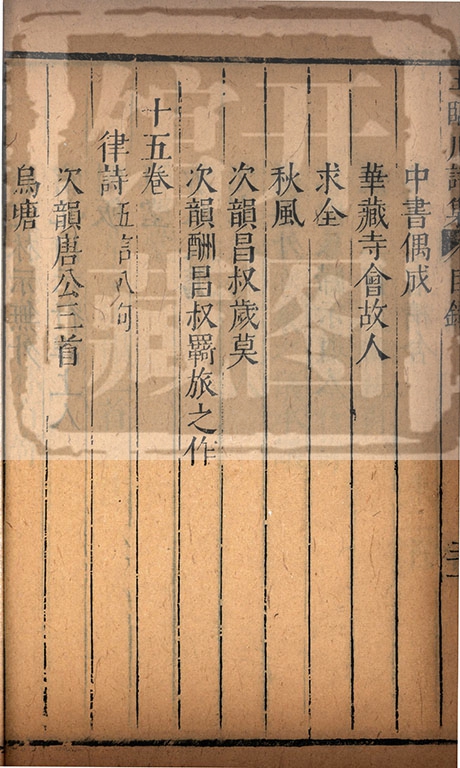 中書偶成
華藏寺會故人
求仝
秋風
次韻昌叔歲莫
次韻酬昌叔羇旅之作
十五卷
律詩 五言八句
次韻唐公三首
烏塘